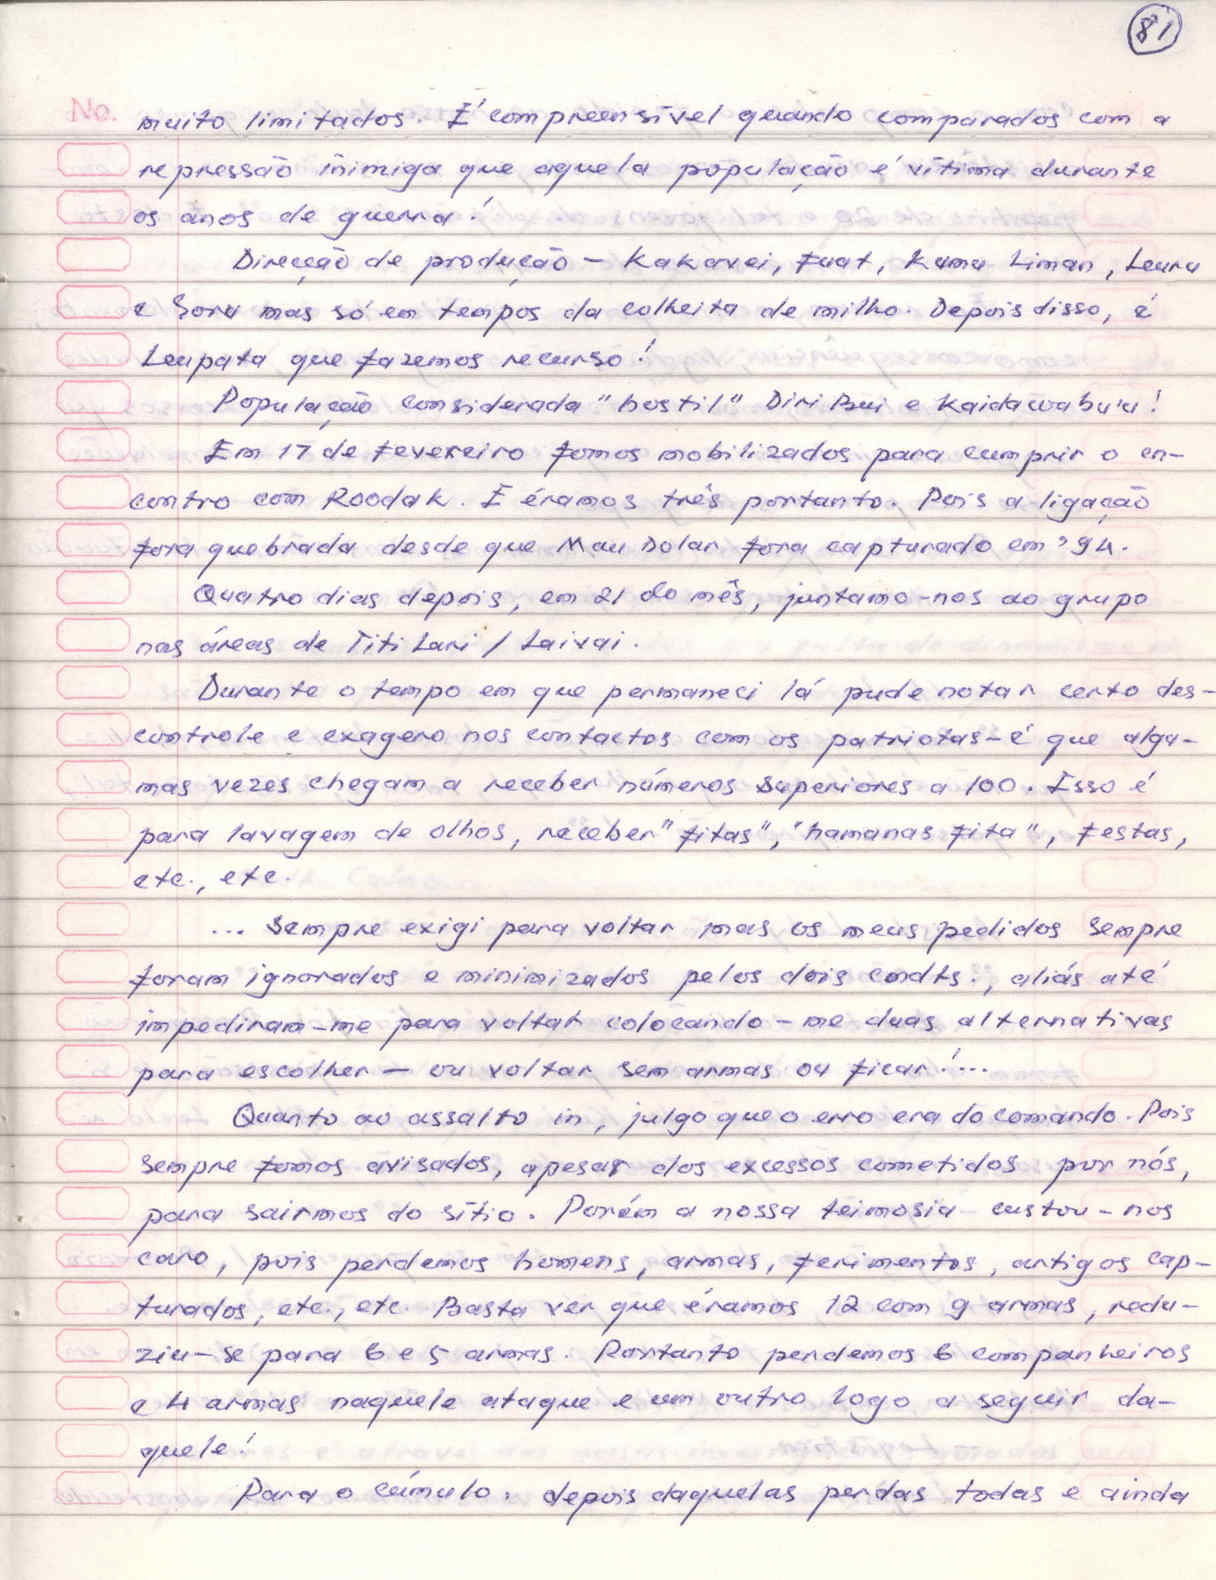 81
No.
muito limitados. É compreensível quando comparados com a
repressão inimiga que aquela população é vítima durante
os anos de guerra!
Direcção de produção - Kakavei, Fuat, Kama Liman, Leuru
e Soru mas só em tempos da colheita de milho. Depois disso, é
Leupata que fazemos recurso!
População considerada "hostil" Diri Bui e Kaidawabu'u!
Em 17 de Fevereiro fomos mobilizados para cumprir o en-
contro com Roodak. E éramos três portanto. Pois a ligação
fora quebrada desde que Mau Dolar fora capturado em '94.
Quatro dias depois, em 21 do mês, juntamo-nos ao grupo
nas áreas de Titi Lari / Laivai.
Durante o tempo em que permaneci lá pude notar certo des-
controle e exagero nos contactos com os patriotas - é que algu-
mas vezes chegam a receber números superiores a 100. Isso é
para lavagem de olhos, receber "fitas", "hamanas fita", festas,
etc., etc.
... Sempre exigi para voltar mas os meus pedidos sempre
foram ignorados e minimizados pelos dois cmdts., aliás até
impediram-me para voltar colocando-me duas alternativas
para escolher - ou voltar sem armas ou ficar!...
Quanto ao assalto in, julgo que o erro era do comando. Pois
sempre fomos avisados, apesar dos excessos cometidos por nós,
para sairmos do sítio. Porém a nossa teimosia custou-nos
caro, pois perdemos homens, armas, ferimentos, artigos cap-
turados, etc., etc. Basta ver que éramos 12 com 9 armas, redu-
ziu-se para 6 e 5 armas. Portanto perdemos 6 companheiros
e 4 armas naquele ataque e um outro logo a seguir da-
quele!
Para o cúmulo, depois daquelas perdas todas e ainda